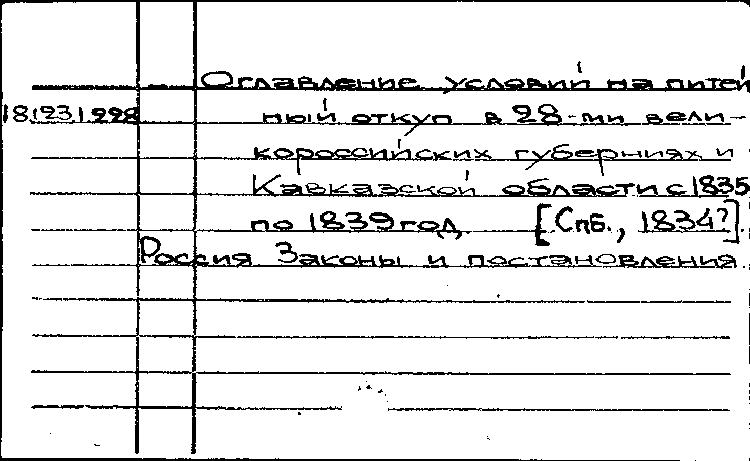 Оглавление условий на питей
18.123.1.228 ный откуп в 28-ми вели-
короссийских губерниях и
Кавказской области с 1835
по 1839 год. [Спб., 1834?].
Россия Законы и постановления.